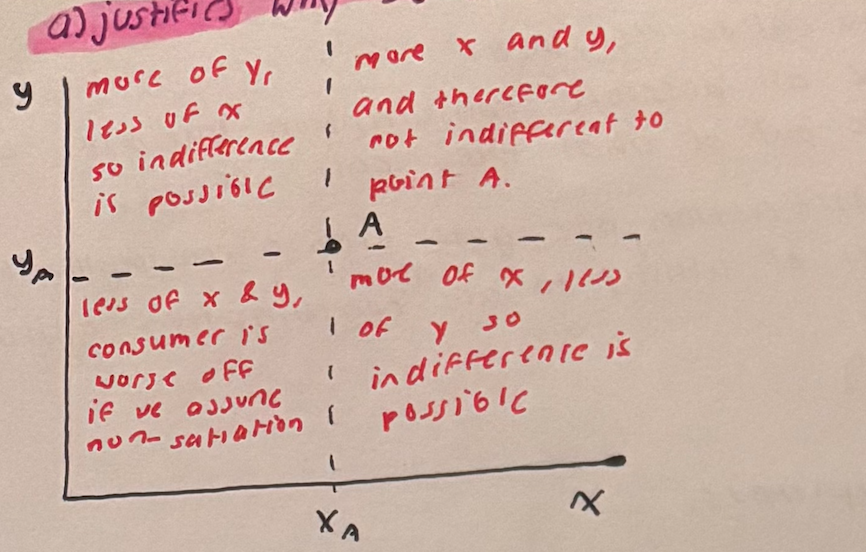 a) justifies why
y
more of y,
less of x
so indifference
is possible
more x and y,
and therefore
not indifferent to
point A.
A
yA
less of x & y,
consumer is
worse off
if we assume
non-satiation
more of x, less
of y so
indifference is
possible
xA
x